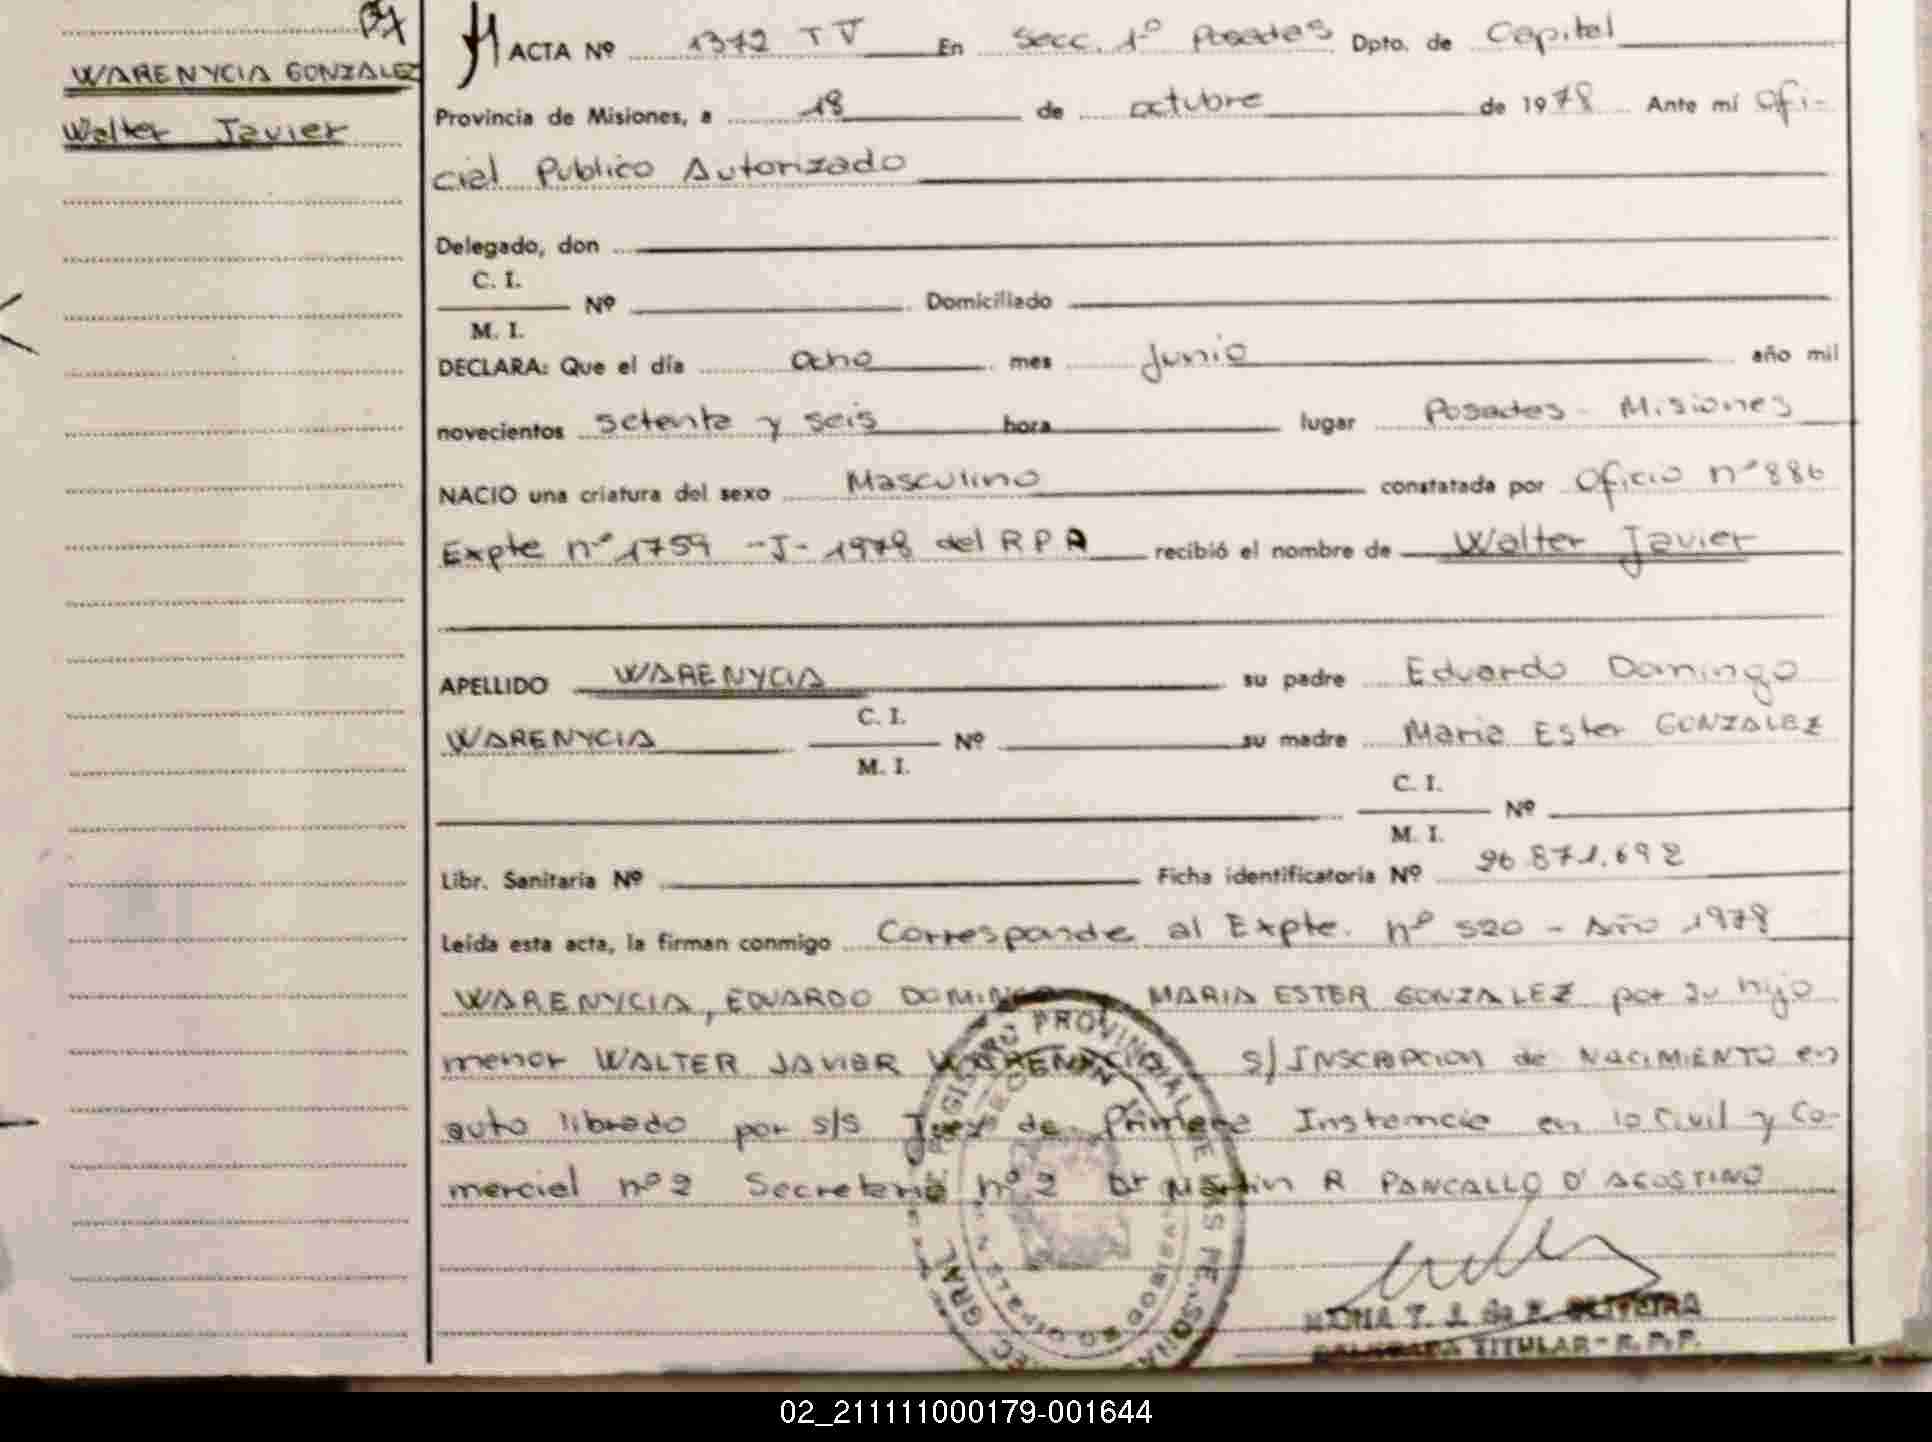 WARENYCIA GONZALEZ
Walter Javier
ACTA Nº 1372 TV En Secc. 1º Posadas Dpto. de Capital
Provincia de Misiones, a 18 de octubre de 1978 Ante mí Ofi-
cial Publico Autorizado
Delegado, don
C. I.
Nº Domiciliado
M. I.
DECLARA: Que el día ocho mes Junio año mil
novecientos setenta y seis hora lugar Posadas - Misiones
NACIO una criatura del sexo Masculino constatada por Oficio nº 886
Expte nº 1759 -J- 1978 del RPA recibió el nombre de Walter Javier
APELLIDO WARENYCIA su padre Eduardo Domingo
C. I.
WARENYCIA Nº su madre Maria Ester GONZALEZ
M. I.
C. I.
Nº
M. I.
Libr. Sanitaria Nº Ficha identificatoria Nº 26 871.692
Leída esta acta, la firman conmigo Corresponde al Expte. nº 520 - Año 1978
WARENYCIA, EDUARDO DOMINGO MARIA ESTER GONZALEZ por su hijo
menor WALTER JAVIER WARENYCIA s/ INSCRIPCION de NACIMIENTO en
auto librado por s/s Juez de Primera Instancia en lo Civil y Co-
mercial nº 2 Secretaria nº 2 Dr Martin R PANCALLO D'AGOSTINO
GRAL. REGISTRO PROVINCIAL DE LAS PERSONAS
T. J. de OLIVEIRA
TITULAR - R. P. P.
02_211111000179-001644